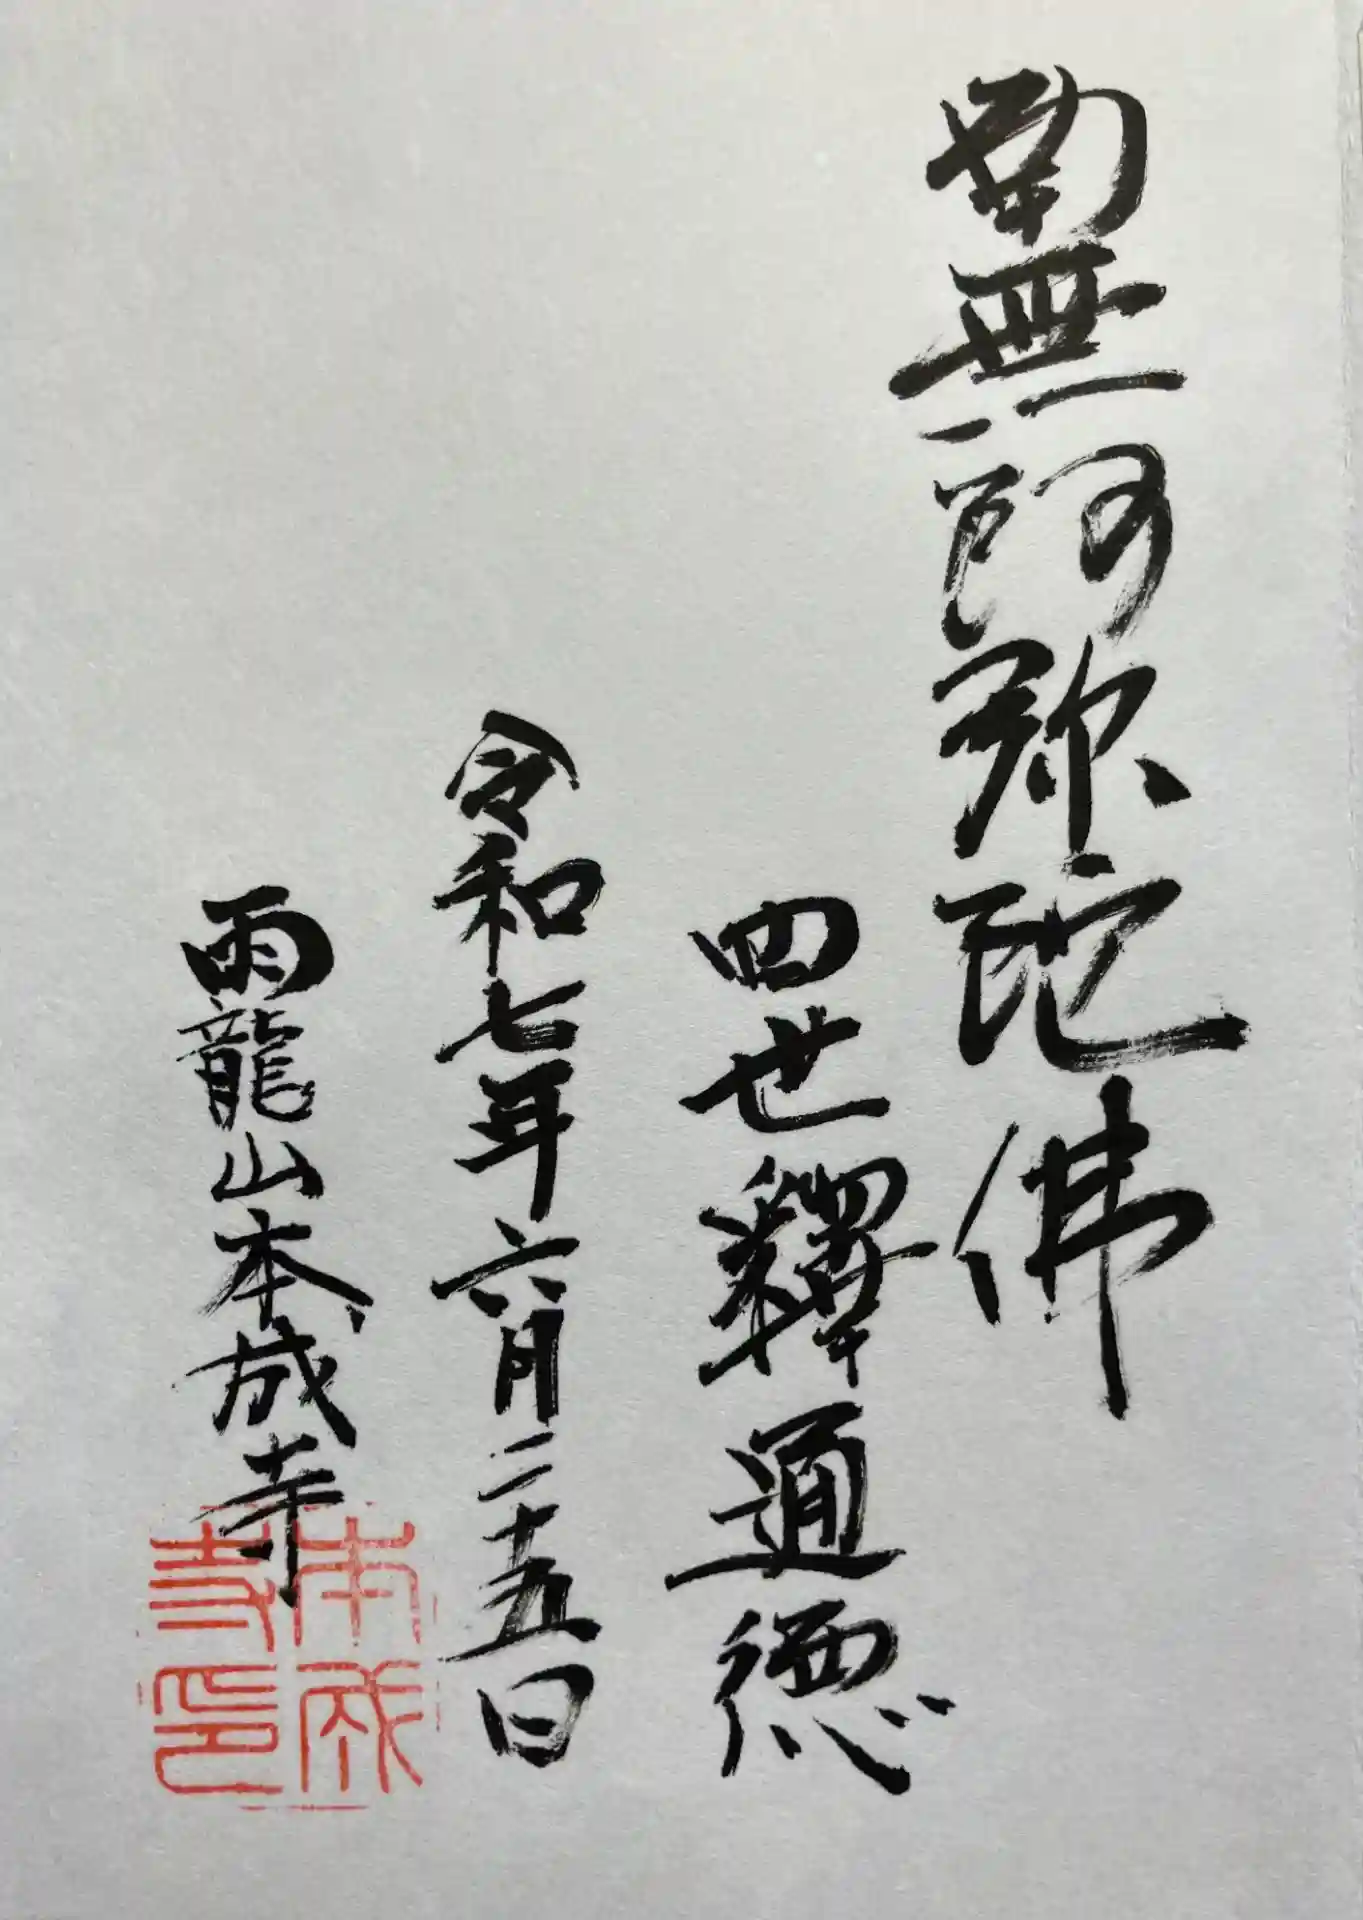 南無阿弥陀佛
四世釋通德
令和七年六月二十五日
雨龍山本成寺
本成寺印